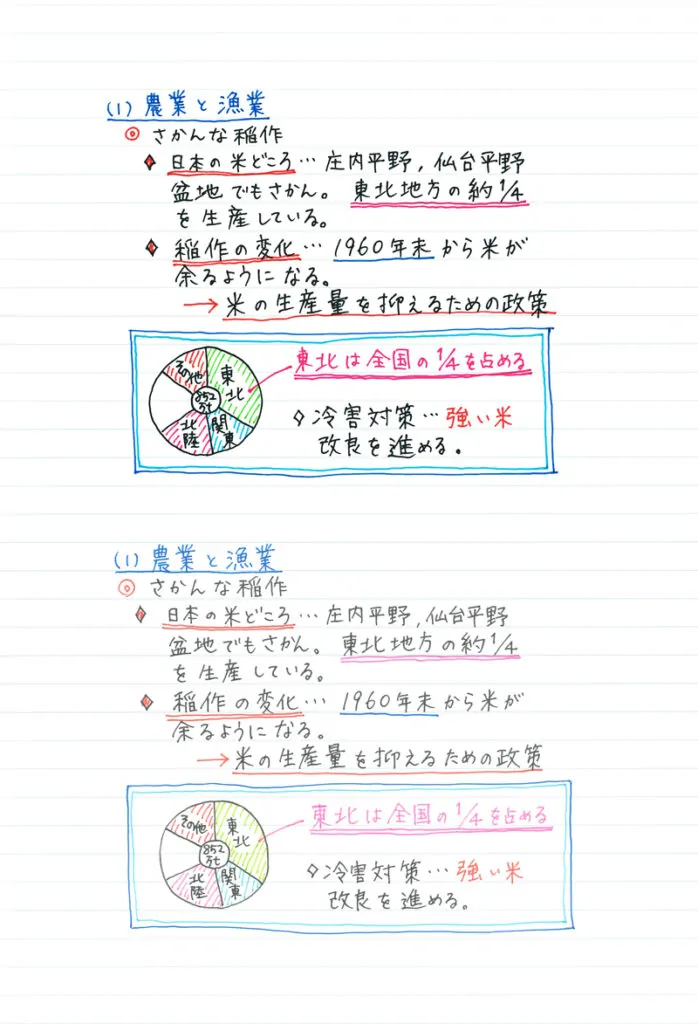 (1) 農業と漁業
◎ さかんな稲作
◆ 日本の米どころ… 庄内平野, 仙台平野
盆地でもさかん。東北地方の約1/4
を生産している。
◆ 稲作の変化… 1960年末から米が
余るようになる。
→ 米の生産量を抑えるための政策
その他
東北
852万t
北陸
関東
東北は全国の1/4を占める
◇冷害対策…強い米
改良を進める。
(1) 農業と漁業
◎ さかんな稲作
◆ 日本の米どころ… 庄内平野, 仙台平野
盆地でもさかん。東北地方の約1/4
を生産している。
◆ 稲作の変化… 1960年末から米が
余るようになる。
→ 米の生産量を抑えるための政策
その他
東北
852万t
北陸
関東
東北は全国の1/4を占める
◇冷害対策…強い米
改良を進める。